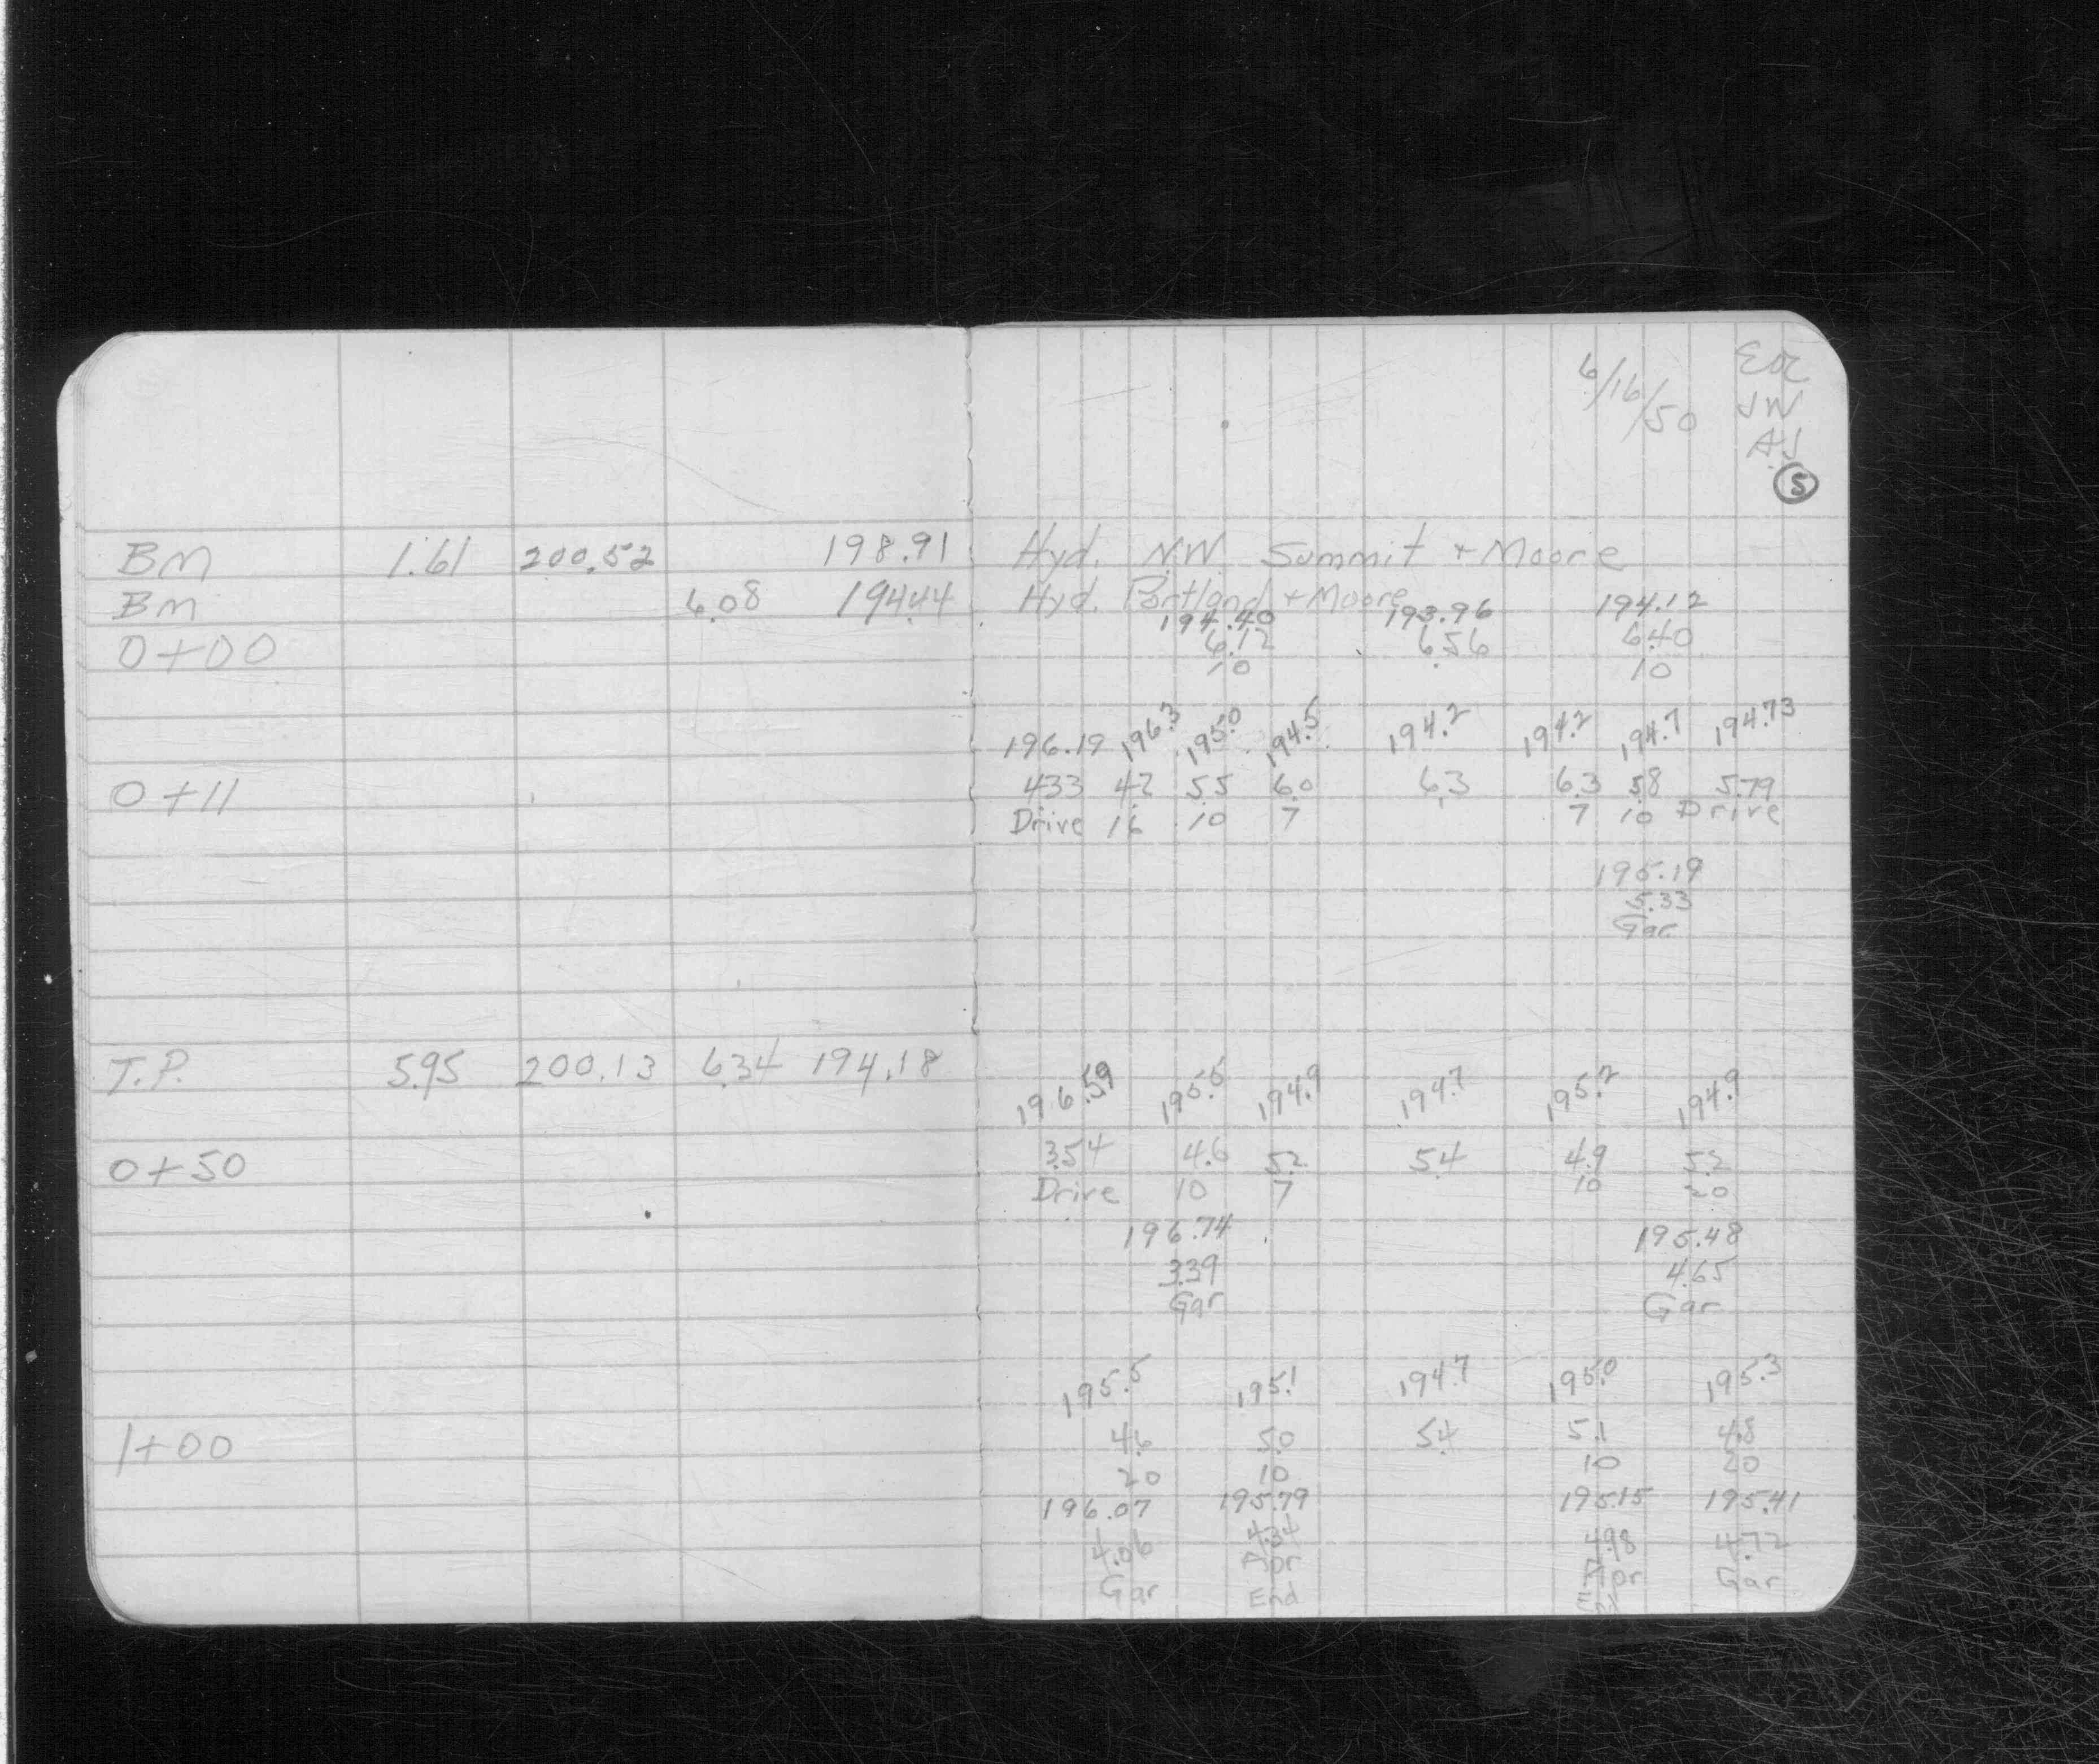 6/16/50 EOE
JW
AJ
5
BM 1.61 200.52 198.91 Hyd. N.W. Summit + Moore
BM 6.08 194.44 Hyd. Portland + Moore
194.40 193.96 194.12
0+00 6.12 6.56 6.40
10 10
196.19 196.3 195.0 194.5 194.2 194.2 194.7 194.73
0+11 4.33 4.2 5.5 6.0 6.3 6.3 5.8 5.79
Drive 16 10 7 7 10 Drive
195.19
5.33
Gar.
T.P. 5.95 200.13 6.34 194.18
196.59 195.5 194.9 194.7 195.2 194.9
0+50 3.54 4.6 5.2 5.4 4.9 5.2
Drive 10 7 10 20
196.74 195.48
3.39 4.65
Gar Gar
195.5 195.1 194.7 195.0 195.3
1+00 4.6 5.0 5.4 5.1 4.8
20 10 10 20
196.07 195.79 195.15 195.41
4.06 4.34 4.98 4.72
Gar Apr Apr Gar
End